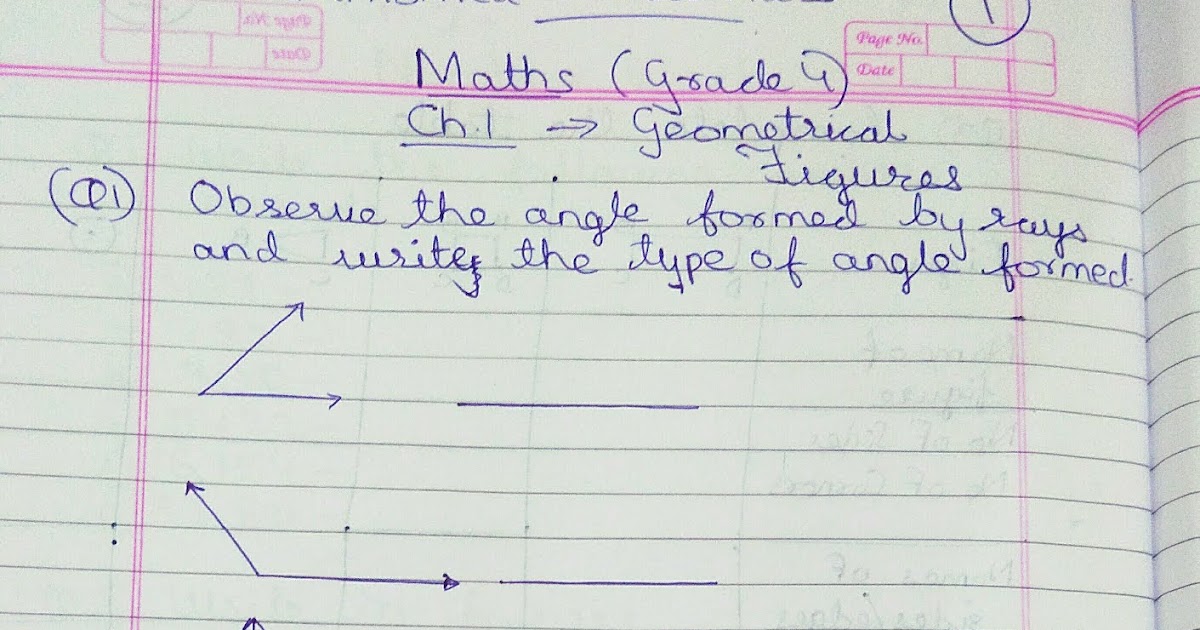 1
Page No.
Date
Maths (Grade 4)
Ch.1 → Geometrical
Figures
(Q1) Observe the angle formed by rays
and write the type of angle formed.